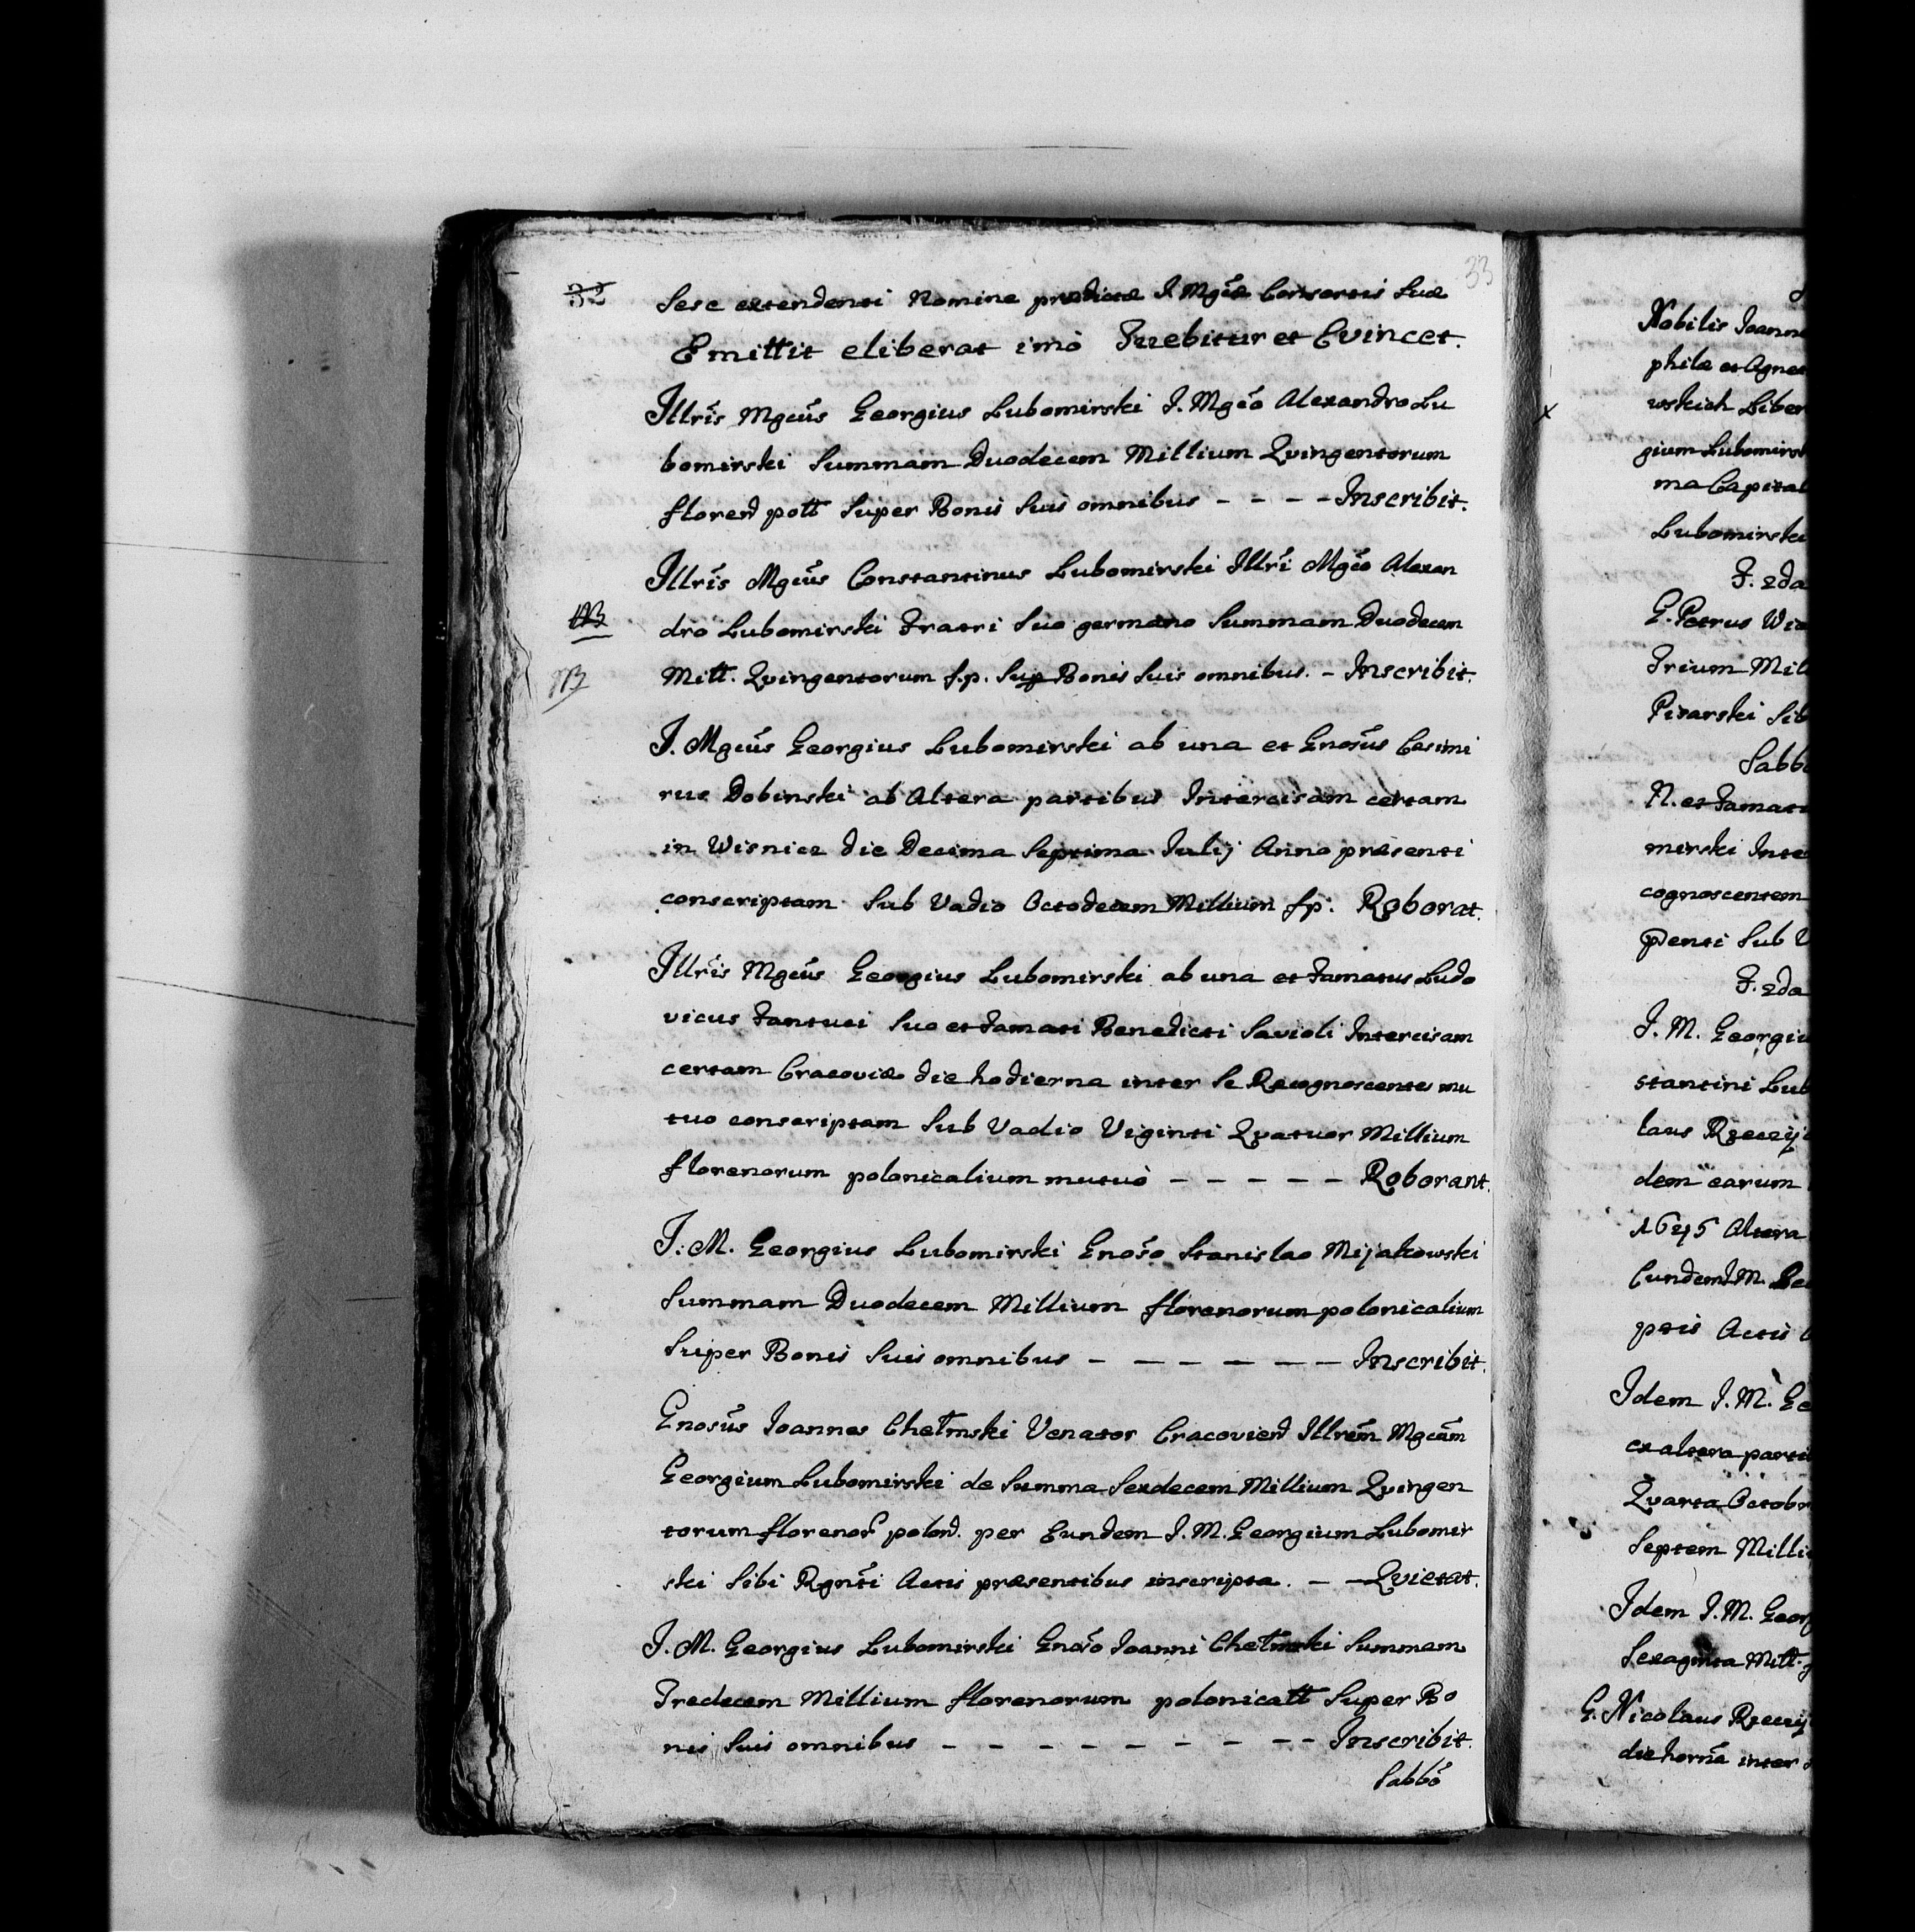 32
33
Sese extendenti Nomine prædictæ I Mgcæ Consortis Suæ
Emittit eliberat imò Tuebitur et Evincet.
Illris Mgcus Georgius Lubomirski I. Mgco Alexandro Lu
bomirski Summam Duodecem Millium Qvingentorum
floren poll Super Bonis Suis omnibus - - - - Inscribit.
Illris Mgcus Constantinus Lubomirski Illri Mgco Alexan
dro Lubomirski Fratri Suo germano Summam Duodecem
Mill. Qvingentorum f.p. Sup Bonis Suis omnibus. - Inscribit.
I. Mgcus Georgius Lubomirski ab una et Gnosus Casimi
rus Dobinski ab Altera partibus Intercisam certam
in Wisnicz die Decima Septima Julij Anno præsenti
conscriptam Sub Vadio Octodecem Millium fp. Roborat.
Illris Mgcus Georgius Lubomirski ab una et Famatus Ludo
vicus Fantuci Suo et Famati Benedicti Savioli Intercisam
certam Cracoviæ die hodierna inter Se Recognoscentes mu
tuo conscriptam Sub Vadio Viginti Qvatuor Millium
florenorum polonicalium mutuò - - - - - Roborant.
I. M. Georgius Lubomirski Gnoso Stanislao Mijakowski
Summam Duodecem Millium florenorum polonicalium
Super Bonis Suis omnibus - - - - - - Inscribit.
Gnosus Joannes Chełmski Venator Cracovien Illrem Mgcum
Georgium Lubomirski de Summa Sexdecem Millium Qvingen
torum florenor polon. per Eundem I. M. Georgium Lubomir
ski Sibi Rgnti Actis præsentibus inscripta. - - Qvietat.
I. M. Georgius Lubomirski Gnoso Joanni Chełmski Summam
Tredecem Millium florenorum polonicall Super Bo
nis Suis omnibus - - - - - - - - - Inscribit.
Sabbo
Nobilis Joann
philæ et Agne
wskich Liber
gium Lubomirs
ma Capital
Lubomirski
F. 2da
G. Petrus Wi
Trium Mil
Pisarski Sib
Sabb
N. et Famat
mirski Inte
cognoscentem
penti Sub V
F. 2da
I. M. Georgiu
stantini Lub
laus Rzeczy
dem earum
1645 Altera
Eundem I M. Ge
ptis Actis
Idem I. M. Ge
ex altera parti
Qvarta Octobr
Septem Milli
Idem I. M. Georg
Sexaginta Mill.
G. Nicolaus Rzeczy
die horna inter